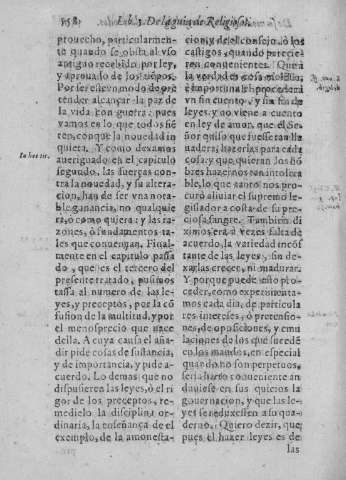 158. Lib. 5. De la guia de Religiosos.
prouecho, particularmen-
te quando se obsta al vso
antiguo recebido por ley,
y aprouado de los tiẽpos.
Por ser lleuo modo de pre-
tender alcançar la paz de
la vida con guerra: pues
vamos es lo que todos siẽ
ten, con que la nouedad in
quieta. Y como dexamos
aueriguado en el capitulo
segundo, las fuerças con-
tra la nouedad, y su altera-
cion, han de ser vna nota-
ble ganancia, no qualquie
ra, o como quiera: y las ra-
zones, ò fundamentos ta-
les que conuengan. Final-
mente en el capitulo passa
do, que es el tercero del
presente tratado, pusimos
tassa al numero de las le-
yes, y preceptos, por la cõ
fusion de la multitud, y por
el menosprecio que nace
della. A cuya causa el aña-
dir pide cosas de sustancia,
y de importancia, y pide a-
cuerdo. Lo demas que no
dispusieren las leyes, ò el ri
gor de los preceptos, re-
medielo la disciplina or-
dinaria, la enseñança de el
exemplo, de la amonesta-
In hoc tit.
cion, y del consejo, ò los
castigos, quando parecie-
ren conuenientes. Que à
la verdad es cosa
importunar la
vn sin cuento, y sin fin de
leyes, y no viene a cuento
en ley de amor, que el Se-
ñor quiso que fuesse
uadera, hazerlas para cada
cosa: y que quieran los hõ
bres hazernos intolera
ble, lo que tanto nos pro-
curò aliuiar el supremo le
gislador a costa de su pre-
ciosa sangre. Tambien di
ximos era a vezes falta de
acuerdo, la variedad incõs
tante de las leyes, sin de-
xarlas crecer, ni madurar.
Y porque puede esto pro-
ceder, como experimenta-
mos cada dia, de particula
res interesses, ò pretensio-
nes, de oposiciones, y emu
laciones de los que sucedẽ
en los mandos, en especial
quando no son perpetuos,
seria harto conueniente an
duuiesse en sus quicios la
gouernacion, y que las le-
yes se reduxessen a su qua-
derno. Quiero dezir, que
pues el hazer leyes es de
las